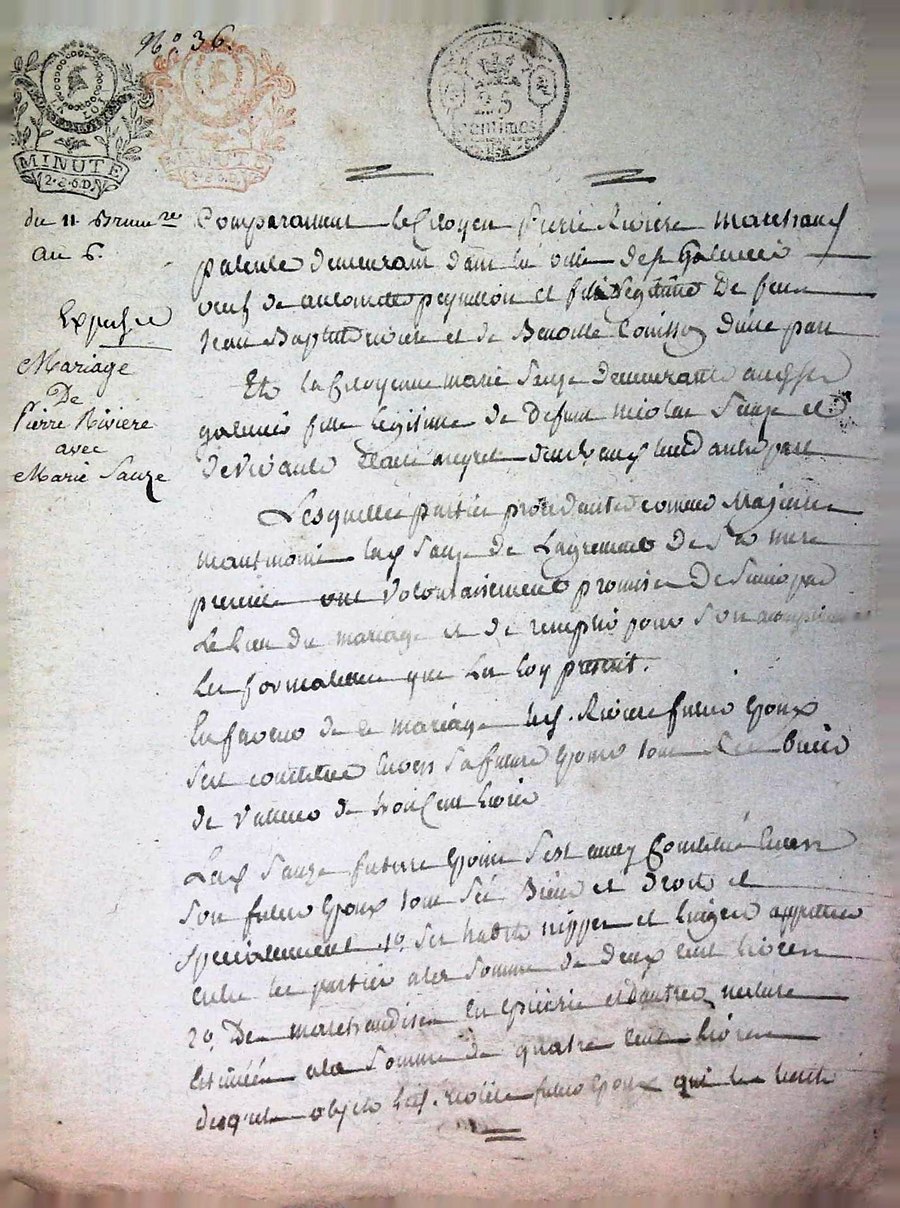 No. 36.
LA LOI
MINUTE
2.S.6.D.
MINUTE
2.S.6.D.
25
centimes
du 11 Brum.re
an 6.
Expedié
Mariage
De
Pierre Riviere
avec
Marie Sauze
Comparaissent le Citoyen Pierre Riviere Marchand
patenté demeurant dans la ville de St Galmier
veuf de antoinette peyrellon et fils Legitime De feu
Jean Baptiste riviere et de Benoitte d'une part
Et la Citoyenne marie Sauze demeurante aussy a St
galmier fille legitime de Defunt nicolas Sauze et
de vivante d'autre part
Lesquelles parties procedantes comme Majeures
la C. Sauze de Lagrement De Sa mere
presente ont volontairement promis De Sunir par
Le lien du mariage et de remplir pour Son
les formalites que La loy prescrit.
En faveur de ce mariage le C. Riviere futur Epoux
sest constitué Envers Sa future Epouse tous Ses biens
de valleur de trois Cent livres
La C. Sauze future Epouse Sest aussy Constitué Envers
Son futur Epoux tous Ses Biens et droits et
specialement 1o. Ses habits nippes et linges
entre les parties a la Somme de deux Cent livres
2o. De marchandises En Epicerie et d'autres nature
Estimées a la Somme de quatre Cent livres
desquels objets le C. riviere futur Epoux qui les